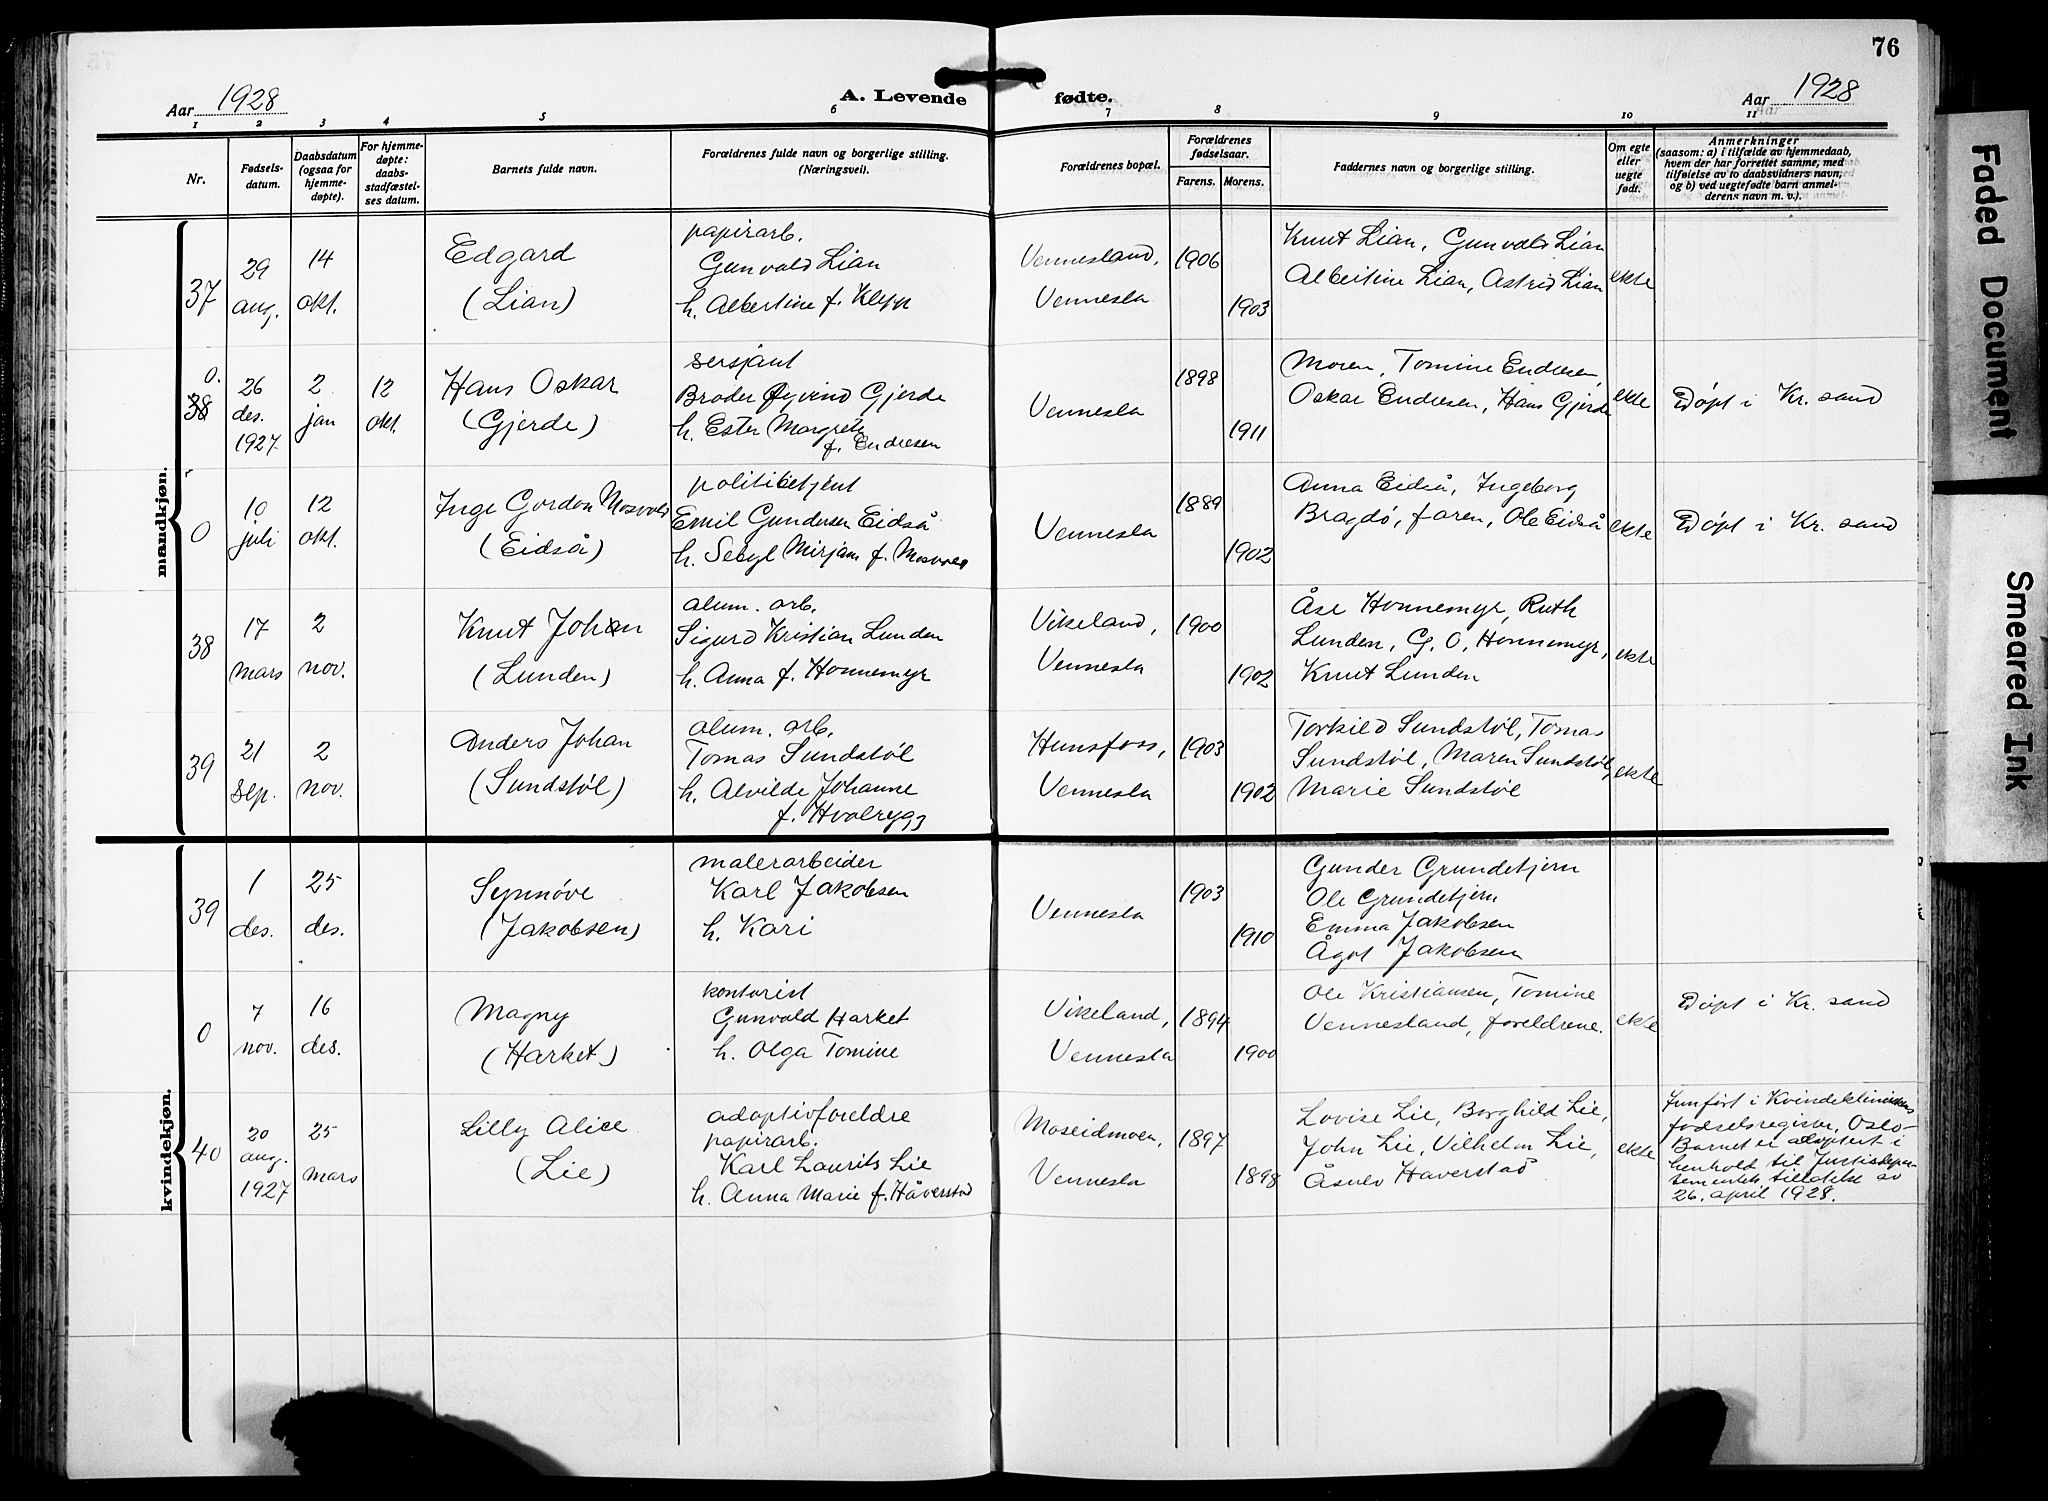 76
Aar 1928
A. Levende fødte.
Aar 1928
1 2 3 4 5 6 7 8 9 10 11
Nr.
Fødsels-
datum.
Daabsdatum
(ogsaa for
hjemme-
døpte).
For hjemme-
døpte:
daabs-
stadfæstel-
ses datum.
Barnets fulde navn.
Forældrenes fulde navn og borgerlige stilling.
(Næringsvei).
Forældrenes bopæl.
Forældrenes
fødselsaar.
Farens. Morens.
Faddernes navn og borgerlige stilling.
Om egte
eller
uegte
født.
Anmerkninger
(saasom: a) i tilfælde av hjemmedaab,
hvem der har forrettet samme, med
tilføielse av to daabsvidners navn,
og b) ved uegtefødte barn anmel-
derens navn m. v.).
mandkjøn.
37
29
aug.
14
okt.
Edgard
(Lian)
papirarb.
Gunvald Lian
h. Albertine f. Klepp
Vennesland,
Vennesla
1906
1903
Knut Lian, Gunvald Lian
Albertine Lian, Astrid Lian
ekte
0.
38
26
des.
1927
2
jan
12
okt.
Hans Oskar
(Gjerde)
sersjant
Broder Øyvind Gjerde
h. Ester Margrete
f. Endresen
Vennesla
1898
1911
Moren, Tomine Endresen,
Oskar Endresen, Hans Gjerde
ekte
Døpt i Kr. sand
0
10
juli
12
okt.
Inge Gordon Mosvold
(Eidså)
politibetjent
Emil Gundersen Eidså
h. Sebyl Mirjam f. Mosvold
Vennesla
1889
1902
Anna Eidså, Ingeborg
Bragdø, faren, Ole Eidså
ekte
Døpt i Kr. sand
38
17
mars
2
nov.
Knut Johan
(Lunden)
alum. arb.
Sigurd Kristian Lunden
h. Anna f. Honnemyr
Vikeland,
Vennesla
1900
1902
Åse Honnemyr, Ruth
Lunden, G. O. Honnemyr,
Knut Lunden
ekte
39
21
sep.
2
nov.
Anders Johan
(Sundstøl)
alum. arb.
Tomas Sundstøl
h. Alvilde Johanne
f. Hvalrygg
Hunsfoss,
Vennesla
1903
1902
Torkild Sundstøl, Tomas
Sundstøl, Maren Sundstøl,
Marie Sundstøl
ekte
kvindekjøn.
39
1
des.
25
des.
Synnøve
(Jakobsen)
malerarbeider
Karl Jakobsen
h. Kari
Vennesla
1903
1910
Gunder Grundetjern
Ole Grundetjern
Emma Jakobsen
Ågot Jakobsen
0
7
nov.
16
des.
Magny
(Harket)
kontorist
Gunvald Harket
h. Olga Tomine
Vikeland,
Vennesla
1894
1900
Ole Kristiansen, Tomine
Vennesland, foreldrene.
ekte
Døpt i Kr. sand
40
20
aug.
1927
25
mars
Lilly Alice
(Lie)
adoptivforeldre
papirarb.
Karl Laurits Lie
h. Anna Marie f. Håverstad
Moseidmoen,
Vennesla
1897
1898
Lovise Lie, Borghild Lie,
John Lie, Vilhelm Lie,
Åsulv Haverstad
ekte
Innført i Kvindeklinikkens
fødselsregister, Oslo-
Barnet er adoptert i
henhold til Justisdepar-
tementets tillatelse av
26. april 1928.
Faded Document
Smeared Ink